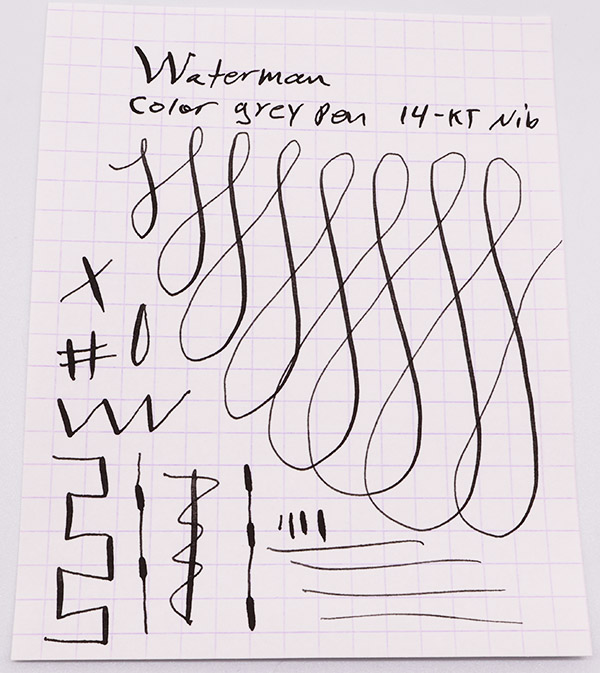 Waterman
Color grey pen 14-KT Nib
X
#